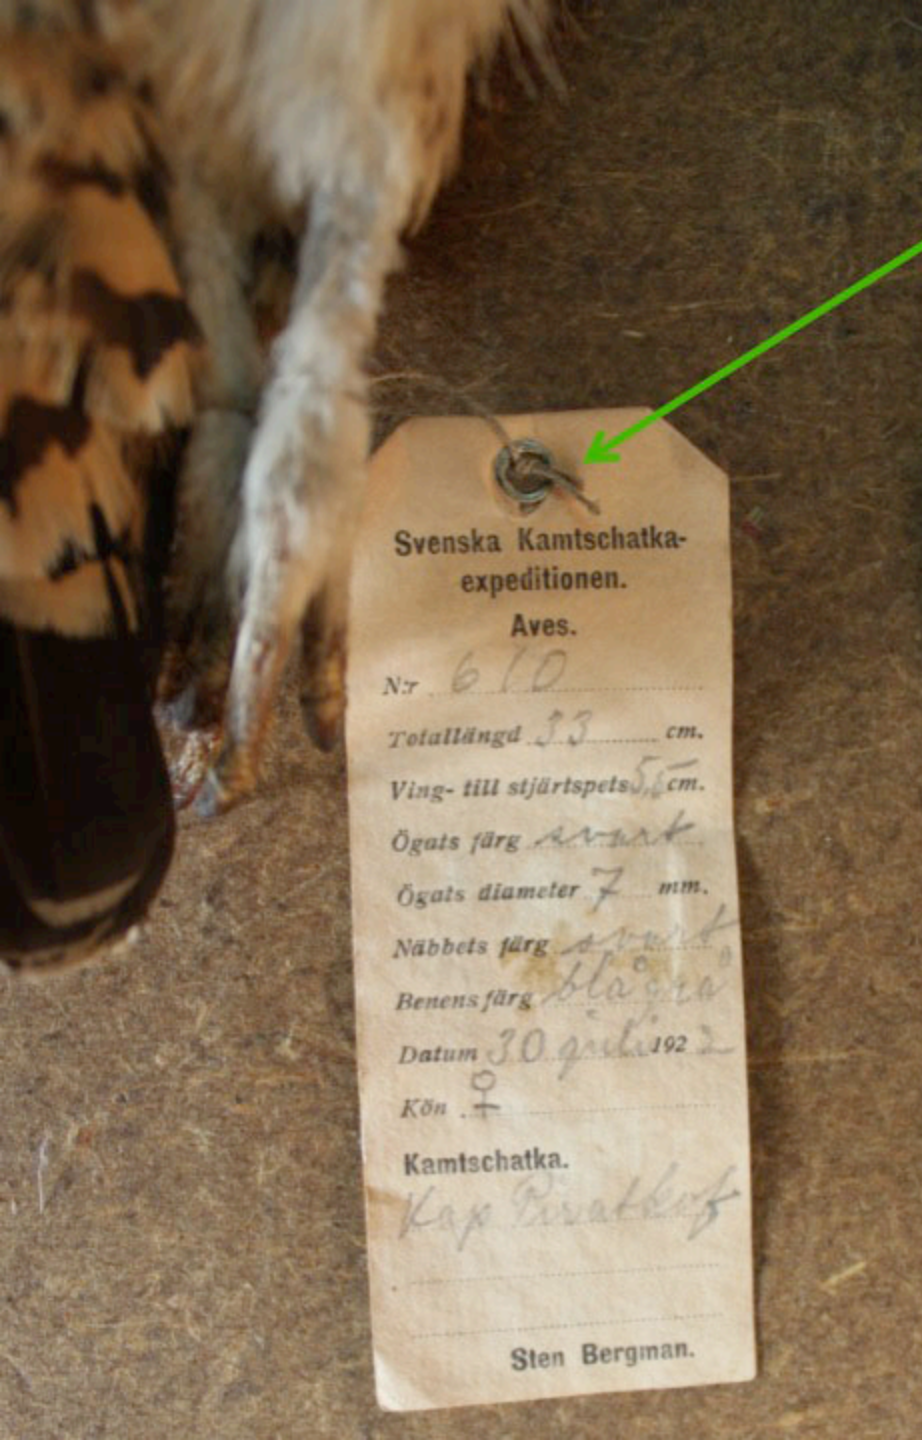 Svenska Kamtschatka-
expeditionen.
Aves.
N:r 610
Totallängd 33 cm.
Ving- till stjärtspets 5,5 cm.
Ögats färg svart
Ögats diameter 7 mm.
Näbbets färg svart
Benens färg blågrå
Datum 30 juli 192
Kön ♀
Kamtschatka.
Kap
Sten Bergman.